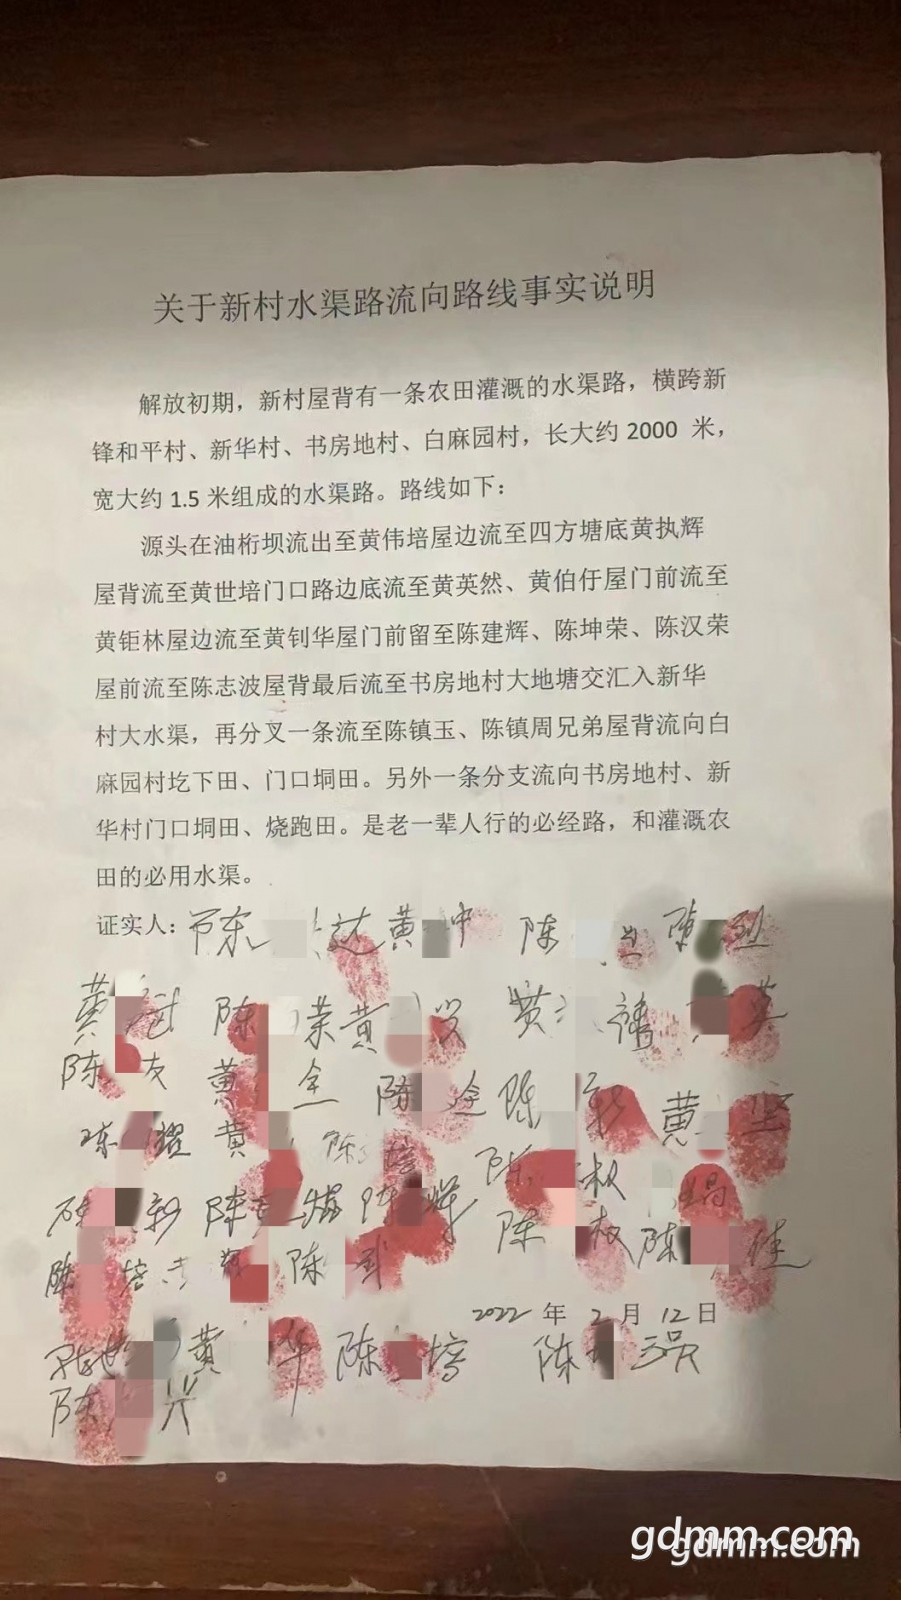 关于新村水渠路流向路线事实说明
解放初期，新村屋背有一条农田灌溉的水渠路，横跨新
锋和平村、新华村、书房地村、白麻园村，长大约 2000 米，
宽大约 1.5 米组成的水渠路。路线如下：
源头在油桁坝流出至黄伟培屋边流至四方塘底黄执辉
屋背流至黄世培门口路边底流至黄英然、黄伯仔屋门前流至
黄钜林屋边流至黄钊华屋门前留至陈建辉、陈坤荣、陈汉荣
屋前流至陈志波屋背最后流至书房地村大地塘交汇入新华
村大水渠，再分叉一条流至陈镇玉、陈镇周兄弟屋背流向白
麻园村圪下田、门口垌田。另外一条分支流向书房地村、新
华村门口垌田、烧跑田。是老一辈人行的必经路，和灌溉农
田的必用水渠。
证实人： 达 黄 冲 陈 烈
黄 陈 荣 黄 英
陈 友 黄 全 陈 途 陈 新 黄 坚
陈 耀 黄 陈 培 陈 权
陈 新 陈 辉
陈 培 陈 陈 权 陈 佳
2022 年 2 月 12 日
黄 华 陈 培 陈
陈 兴
gdmm.com
gdmm.com